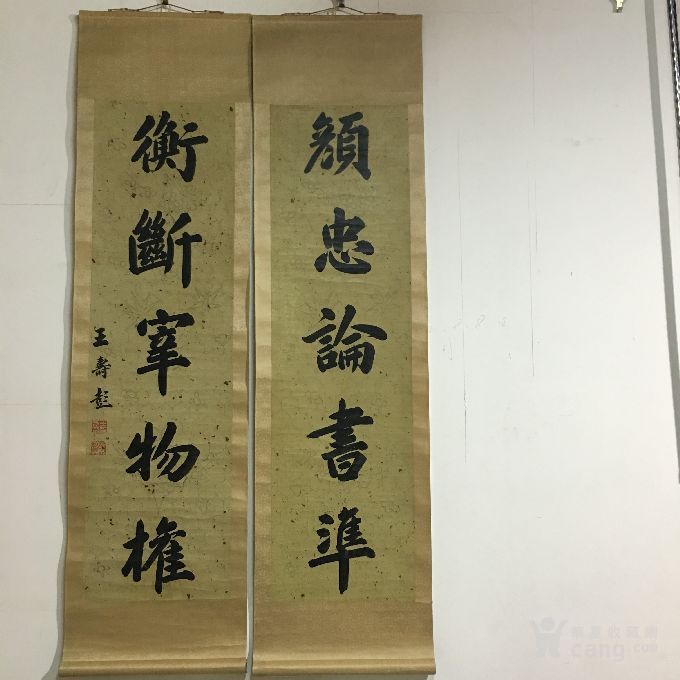 顏忠論書準
衡斷宰物權
王壽彭
華夏收藏網
cang.com